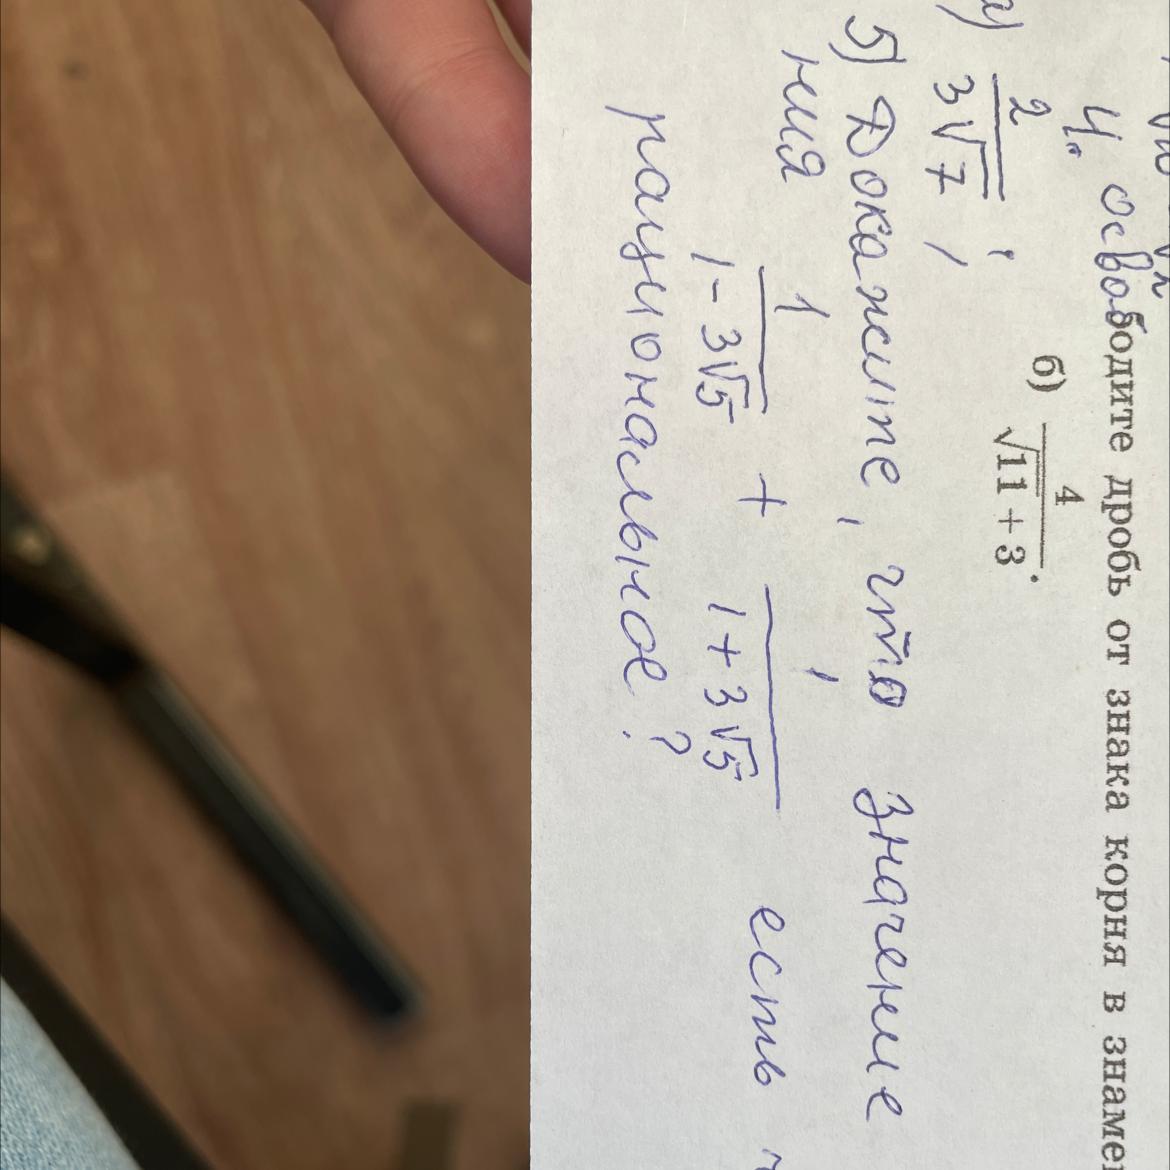 4. освободите дробь от знака корня в
а) 2/(3√7); б) 4/(√11 + 3).
5) Докажите, что значение
ния 1/(1-3√5) + 1/(1+3√5) есть
рациональное?